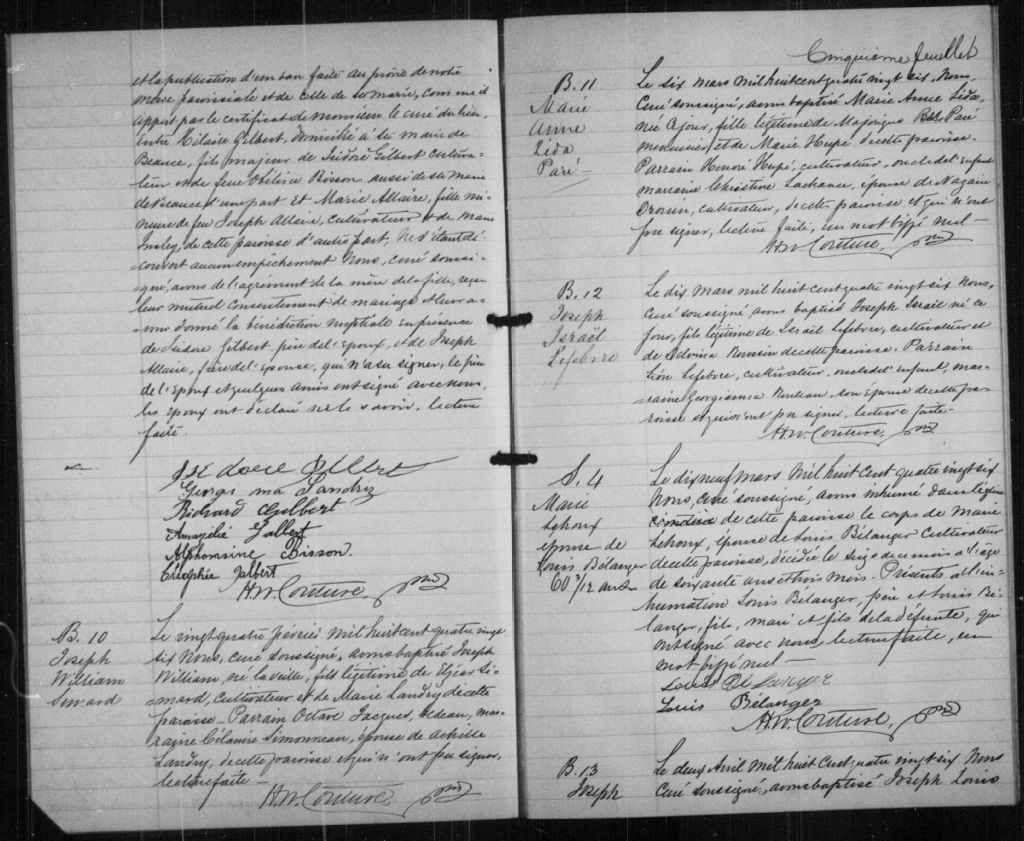 et la publication d'un ban faite au prône de notre
messe paroissiale et de celle de Ste marie, comme il
appert par le certificat de monsieur le curé du lieu,
Entre Hilaire Gilbert, domicilié à Ste marie de
Beauce, fils majeur de Isidore Gilbert cultiva-
teur et de feue Bisson aussi de Ste Marie
de Beauce d'une part Et Marie Allaire, fille mi-
neure de feu Joseph Allaire, cultivateur et de Marie
de cette paroisse d'autre part, ne s'étant dé-
couvert aucun empêchement Nous, curé soussi-
gné, avons de l'agrément de la mère de la fille, reçu
leur mutuel consentement de mariage et leur a-
vons donné la bénédiction nuptiale en présence
de Isidore Gilbert, père de l'Epoux, et de Joseph
Allaire, frère de l'Epouse, qui n'a su signer, le père
de l'Epoux et quelques amis ont signé avec nous,
les époux ont déclaré ne le savoir, lecture
faite.
Isedore Gilbert
Georgi na Landry
Richard Gilbert
Amaydlie Galbert
Alphonsine Bisson.
Gilbert
H W Couture, ptre
B. 10
Joseph
William
Simard
Le vingt quatre février mil huit cent quatre vingt
six Nous, curé soussigné, avons baptisé Joseph
William, né la veille, fils légitime de Elzéar Si-
mard, cultivateur et de Marie Landry de cette
paroisse - Parrain Octave Jacques, bedeau, mar-
raine Célanire Simonneau, épouse de achille
Landry, de cette paroisse et qui n'ont pu signer,
lecture faite -
H W Couture, ptre
Cinquième feuillet
B. 11
Marie
Anne
Léda
Paré -
Le six mars mil huit cent quatre vingt six, Nous,
Curé soussigné, avons baptisé Marie Anne Léda,
née ce jour, fille légitime de Majorique Paré
menuisier, et de Marie Hupé de cette paroisse.
Parrain Honoré Hupé, cultivateur, oncle de l'Enfant
marraine Christine Lachance, épouse de Nazaire
Drouin, cultivateur, de cette paroisse et qui n'ont
pu signer, lecture faite, un mot biffé nul -
H W Couture, ptre
B. 12
Joseph
Israël
Lefebvre
Le dix mars mil huit cent quatre vingt six Nous,
Curé soussigné avons baptisé Joseph Israël né ce
jour, fils légitime de Israël Lefebvre, cultivateur et
de Delvina de cette paroisse. Parrain
Léon Lefebvre, cultivateur, oncle de l'enfant, mar-
raine Georgianna Rouleau son épouse de cette pa-
roisse et qui n'ont pu signer, lecture faite -
H W Couture, ptre
S. 4
Marie
Lehoux
épouse de
Louis Bélanger
60 3/12 ans
Le dix neuf mars mil huit cent quatre vingt six
Nous, curé soussigné, avons inhumé dans l'église
de cette paroisse le corps de Marie
Lehoux, épouse de Louis Bélanger Cultivateur
de cette paroisse, décédée le seize de ce mois à l'âge
de soixante ans et trois mois. Présents à l'in-
humation Louis Bélanger, père et Louis Bé-
langer, fils, mari et fils de la défunte, qui
ont signé avec nous, lecture faite, un
mot biffé nul -
Louis Bélanger
Louis Bélanger
H W Couture, ptre
B. 13
Joseph
Le deux Avril mil huit cent quatre vingt six Nous
Curé soussigné, avons baptisé Joseph Louis